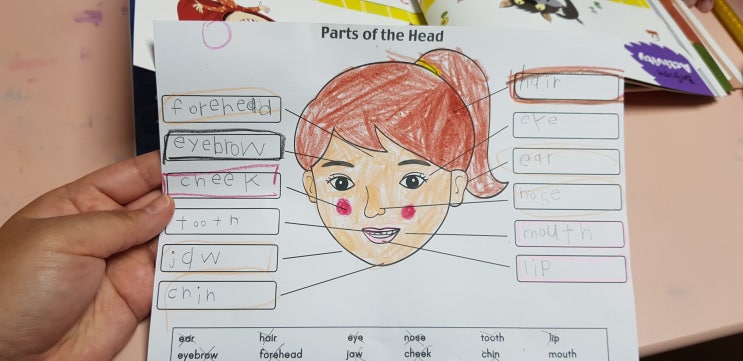 Parts of the Head
forehead
hair
eyebrow
eye
cheek
ear
tooth
nose
jaw
mouth
chin
lip
ear hair eye nose tooth lip
eyebrow forehead jaw cheek chin mouth
Activity